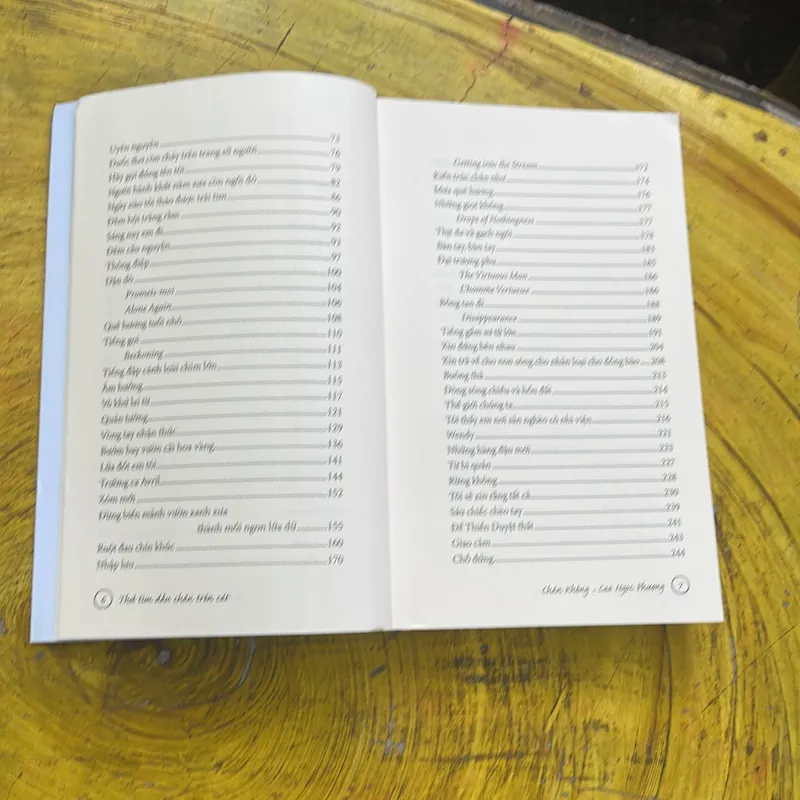 Uyên nguyên 73
Đuốc thơ còn cháy trên trang sử người 76
Hãy gọi đúng tên tôi 79
Người hành khất năm xưa còn ngồi đó 82
Ngày nào tôi tháo được trái tim 86
Đêm hóa trăng rằm 90
Sáng nay em đi 92
Đêm cầu nguyện 93
Thông điệp 97
Dặn dò 100
Promets-moi 104
Alone Again 106
Quê hương tuổi nhỏ 108
Tiếng gọi 110
Beckoning 111
Tiếng đập cánh loài chim lớn 113
Âm hưởng 115
Vô khứ lai từ 117
Quán tưởng 121
Vòng tay nhận thức 129
Bướm bay vườn cải hoa vàng 136
Lửa đốt em tôi 141
Trường ca Avril 144
Xóm mới 152
Dựng biến mảnh vườn xanh xưa
thành mỗi ngọn lửa dữ 155
Ruột đau chín khúc 160
Nhập lưu 170
6 Thơ tìm dấu chân trên cát
Getting into the Stream 172
Kiến trúc chân như 174
Mưa quê hương 176
Những giọt không 177
Drops of Nothingness 177
Thịt da và gạch ngói 178
Bàn tay, bàn tay 183
Đại trượng phu 185
The Virtuous Man 186
L'homme Vertueux 186
Bỗng tan đi 188
Disappearance 189
Tiếng gầm sư tử lớn 191
Xin đứng bên nhau 204
Xin trả về cho non sông cho nhân loại cho đồng bào 208
Buông thả 213
Dòng sông chiều và hòm đất 214
Thế giới chúng ta 215
Tôi thấy em nơi sân nghèo cô nhi viện 216
Wendy 221
Những hàng đậu mới 223
Từ bi quán 227
Rỗng không 228
Tôi sẽ xin rằng tất cả 230
Sáu chiếc chân tay 239
Để Thiền Duyệt thất 241
Giao cảm 243
Chữ đồng 244
Chân Không - Cao Ngọc Phượng 7